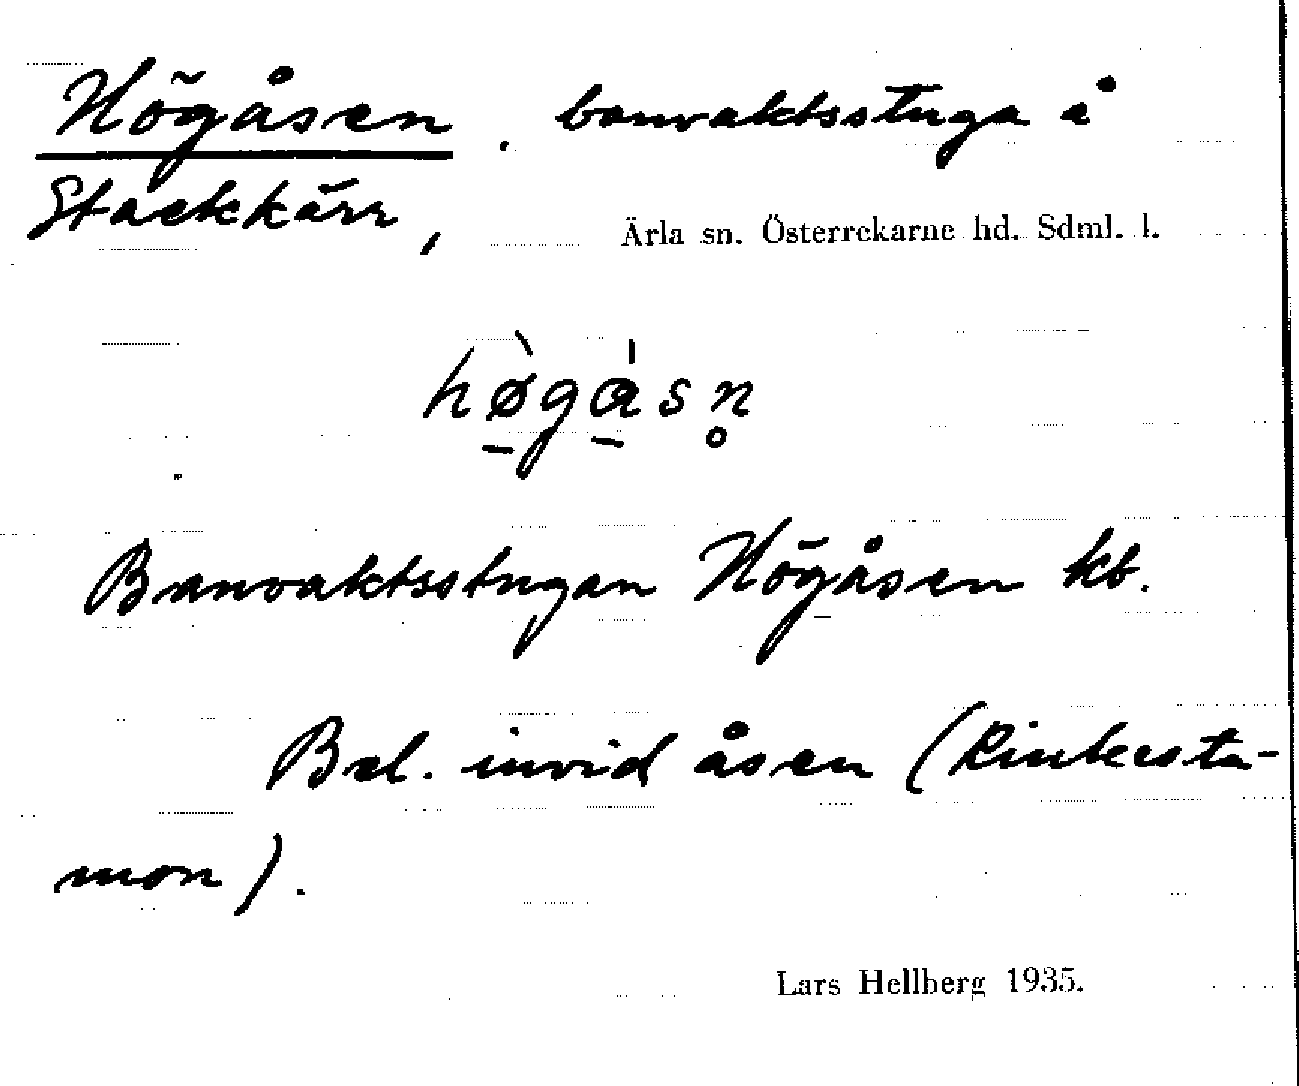 Högåsen, banvaktsstuga å
Stackkärr,
Ärla sn. Österrekarne hd. Sdml. l.
hø̠̀gɑ̠́sn̥
Banvaktsstugan Högåsen kb.
Bel. invid åsen (Kinkesta-
mon).
Lars Hellberg 1935.